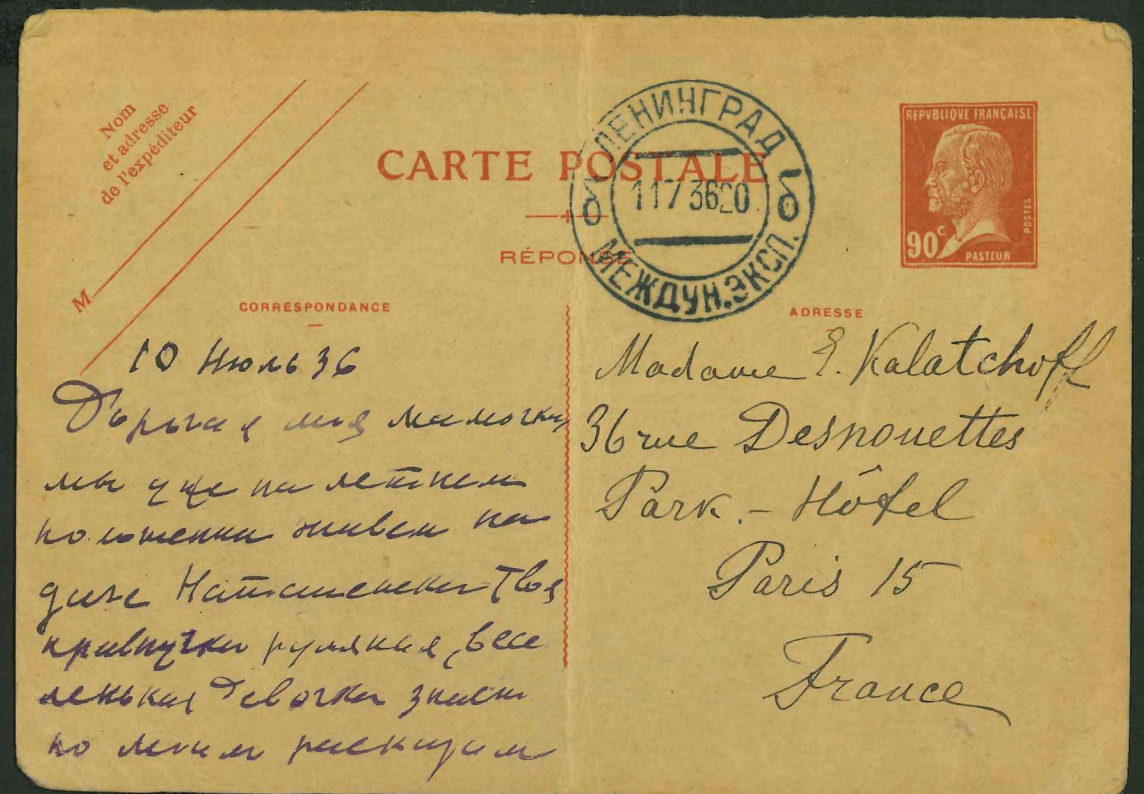 Nom
et adresse
de l'expéditeur
M
CARTE POSTALE
RÉPONSE
ЛЕНИНГРАД
11 7 36 20
МЕЖДУН. ЭКСП.
REPVBLIQUE FRANÇAISE
POSTES
90c
PASTEUR
CORRESPONDANCE
10 Июль 36
Дорогая моя мамочка,
мы уже на летнем
положении живем на
даче Наташенька твоя
правнучка румяная, весе
ленькая девочка знает
по моим рассказам
ADRESSE
Madame E. Kalatchoff
36 rue Desnouettes
Park. - Hôtel
Paris 15
France